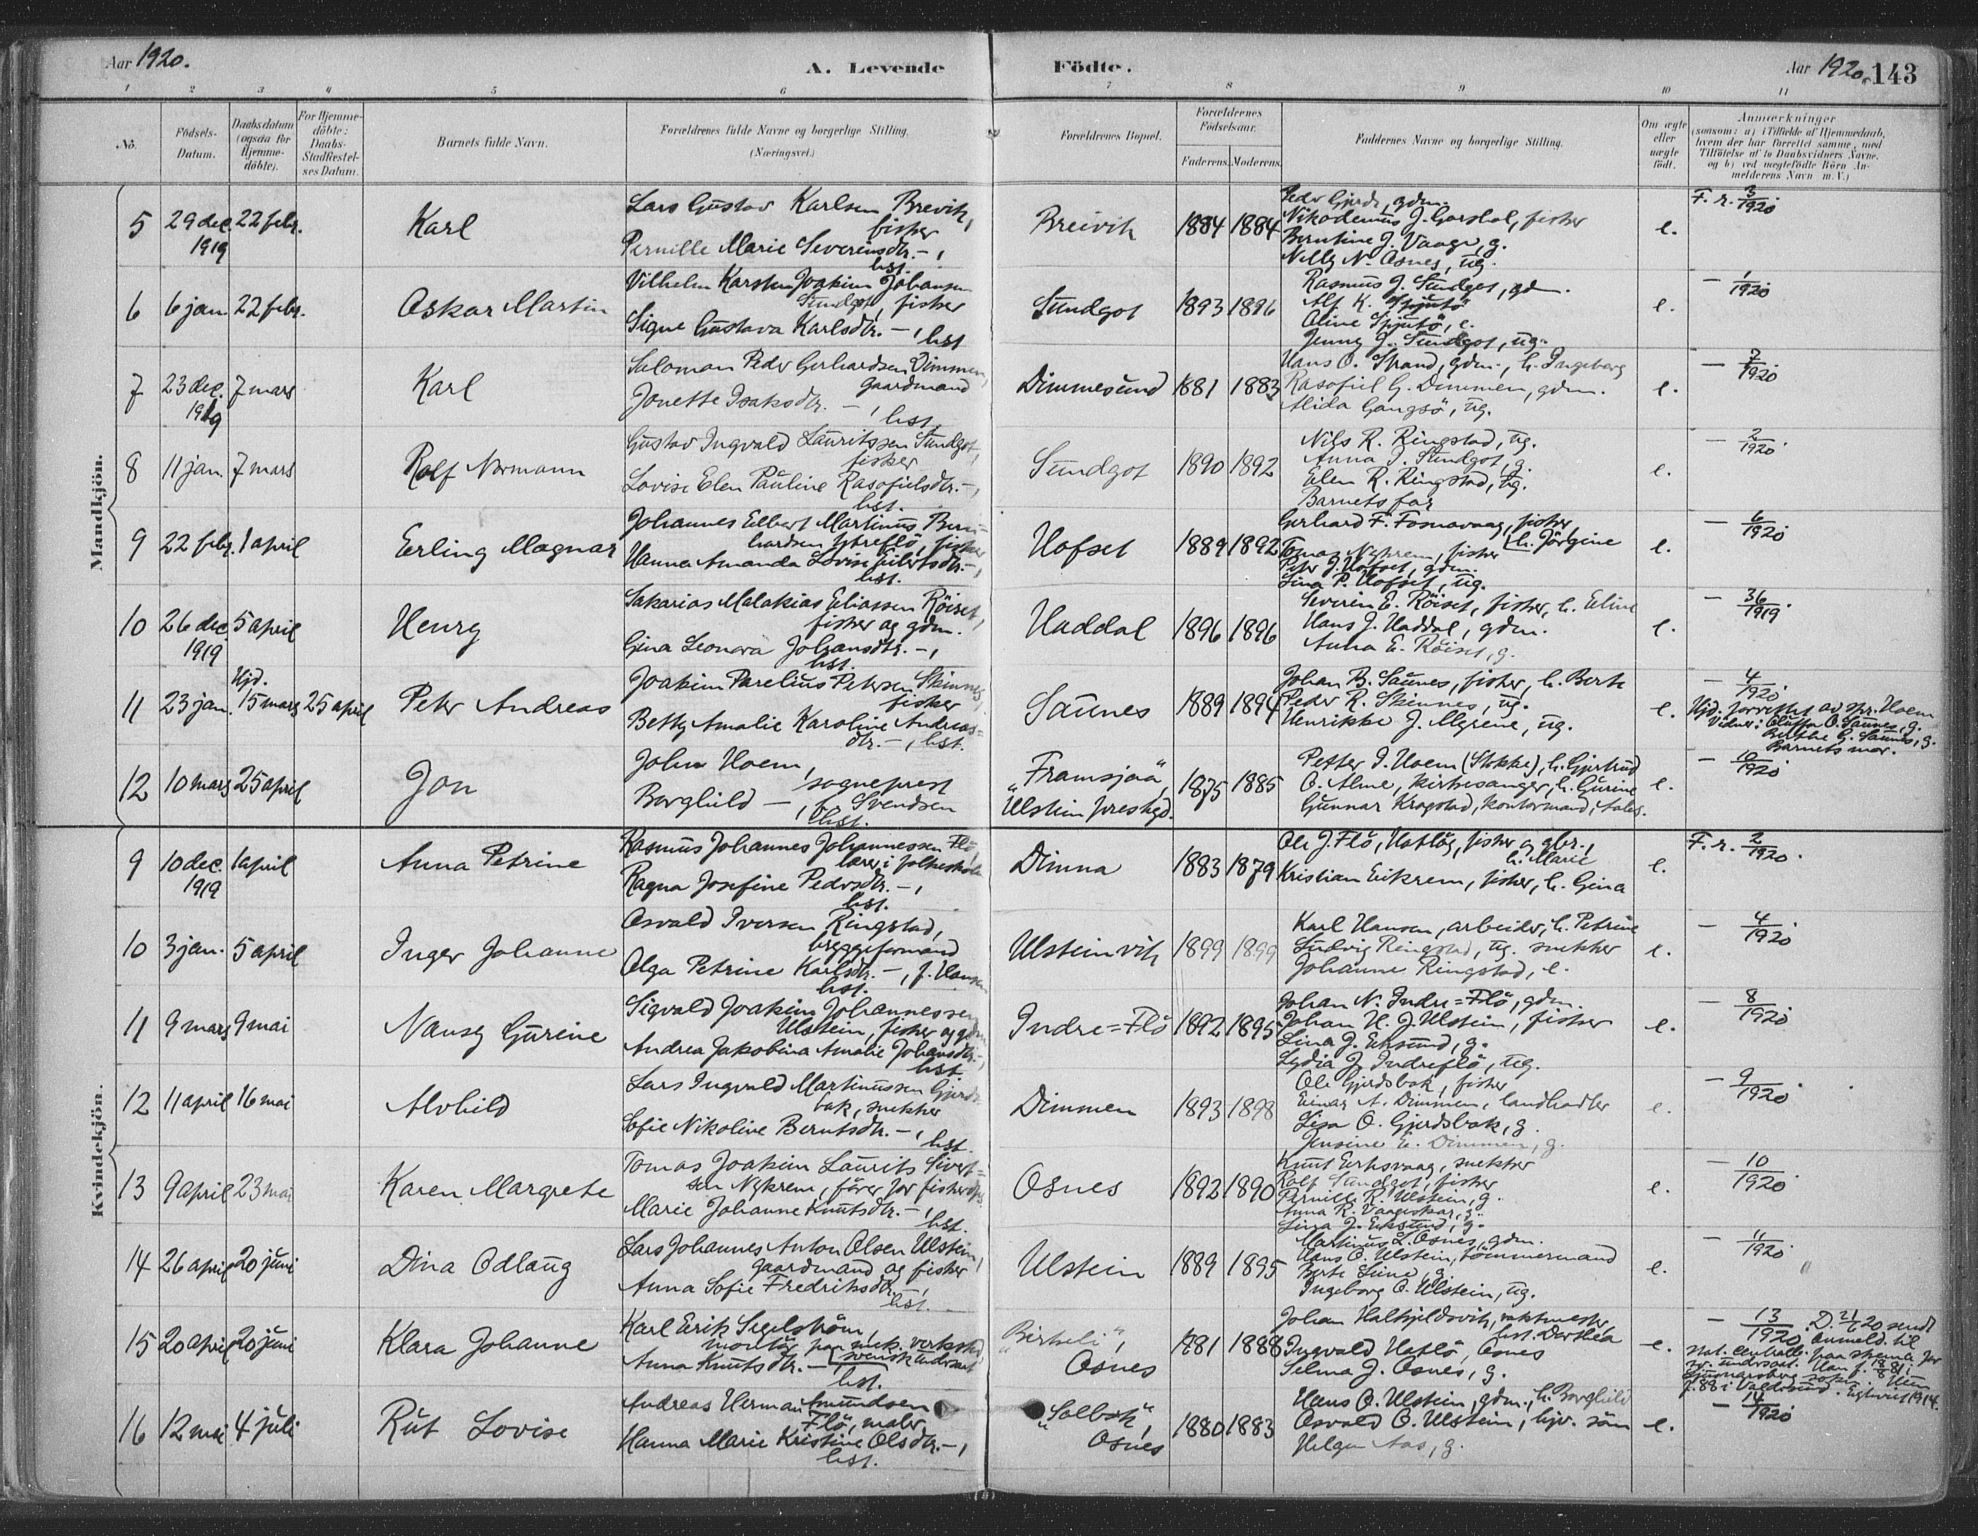 Aar 1920.
A. Levende Födte.
Aar 1920. 143
1 2 3 4 5 6 7 8 9 10 11
No.
Födsels-Datum.
Daabsdatum (ogsaa for Hjemme-döbte).
For Hjemme-döbte: Daabs-Stadfæstel-ses Datum.
Barnets fulde Navn.
Forældrenes fulde Navne og borgerlige Stilling.
(Næringsvei.)
Forældrenes Bopæl.
Forældrenes Födselsaar.
Faderens. Moderens.
Faddernes Navne og borgerlige Stilling.
Om ægte eller uægte födt.
Anmærkninger
(saasom: a) i Tilfælde af Hjemmedaab, hvem der har forrettet samme, med Tilföielse af to Daabsvidners Navne, og b) ved uægtefödte Börn An-melderens Navn m. V.)
Mandkjön.
5 29 dec. 1919 22 febr. Karl
Lars Gustav Karlsen Brevik, fisker
Pernille Marie Severinsdtr. –, hst.
Breivik 1884 1884
Peder Gjerde, gdm.
Nikodemus J. Garshol, fisker
Berntine J. Vaage, g.
Nelly N. Osnes, ug.
e. F. r. 3/1920
6 6 jan. 22 febr. Oskar Martin
Vilhelm Karsten Joakim Johansen Sundgot, fisker
Signe Gustava Karlsdtr. –, hst.
Sundgot 1893 1896
Rasmus J. Sundgot, gdm.
Alf K. Spjutö
Oline Spjutö, e.
Jenny J. Sundgot, ug.
e. – 1/1920
7 23 dec. 1919 7 mars Karl
Salomon Peder Gerhardsen Dimmen, gaardmand
Jonette Isaksdtr. –, hst.
Dimmesund 1881 1883
Hans O. Strand, gdm., h. Ingeborg
Rasofiel G. Dimmen, gdm.
Alida Gangsö, ug.
e. – 7/1920
8 11 jan. 7 mars Rolf Normann
Gustav Ingvald Lauritssen Sundgot, fisker
Lovise Elen Pauline Rasofielsdtr. –, hst.
Sundgot 1890 1892
Nils R. Ringstad, ug.
Anna J. Sundgot, g.
Elen R. Ringstad, ug.
Barnets far
e. – 2/1920
9 22 febr. 1 april Erling Magnar
Johannes Elbert Martinus Bern-hardsen Ytreflö, fisker
Hanna Amanda Lovise Eilertsdtr. –, hst.
Hofset 1889 1892
Gerhard F. Fosnavaag, fisker, h. Jörgine
Tomas Nykrem, fisker
Peter J. Hofset, gdm.
Lina P. Hofset, ug.
e. – 6/1920
10 26 dec. 1919 5 april Henry
Sakarias Malakias Eliassen Röiset, fisker og gdm.
Gina Leonora Johansdtr. –, hst.
Haddal 1896 1896
Severin E. Röiset, fisker, h. Eline
Hans J. Haddal, gdm.
Anna E. Röiset, g.
e. – 36/1919.
11 23 jan. Hjd. 15 mars 25 april Peter Andreas
Joakim Parelius Petersen Skinnes, fisker
Betty Amalie Karoline Andreas-dtr. –, hst.
Saunes 1889 1894
Johan B. Saunes, fisker, h. Berte
Peder R. Skinnes, ug.
Henrikke J. Myrene, ug.
e. – 4/1920
Hjd. forrettet av spr. Hoem
Vidner: O. Saunes, g.
G. Saunes, g.
Barnets mor.
12 10 mars 25 april Jon
John Hoem, sogneprest
Borghild –, f. Svendsen hst.
"Framsjaa", Ulstein prestegd. 1875 1885
Petter I. Hoem (Stokke), h. Gjertrud
O. Alme, kirkesanger, h. Gurine
Gunnar Krogstad, kontormand, Aales.
e. – 10/1920
Kvindekjön.
9 10 dec. 1919 1 april Anna Petrine
Rasmus Johannes Johannessen Flö, lærer i folkeskolen
Ragna Josefine Pedersdtr. –, hst.
Dimna 1883 1879
Ole J. Flö, Hatlög, fisker og gbr., h. Marie
Kristian Eikrem, fisker, h. Gina
e. F. r. 2/1920.
10 3 jan. 5 april Inger Johanne
Osvald Iversen Ringstad, byggeformand
Olga Petrine Karlsdtr. –, f. Hansen hst.
Ulsteinvik 1899 1899
Karl Hansen, arbeider, h. Petrine
Ludvig Ringstad, ug. snekker
Johanne Ringstad, e.
e. – 4/1920.
11 9 mars 9 mai Nansy Gurine
Sigvald Joakim Johannessen Ulstein, fisker og gdm.
Andrea Jakobina Amalie Johansdtr. –, hst.
Indre=Flö 1892 1895
Johan N. Indre=Flö, gdm.
Johan H. J. Ulstein, fisker
Lina J. Eiksund, g.
Lydia J. Indreflö, ug.
e. – 8/1920.
12 11 april 16 mai Alvhild
Lars Ingvald Martinussen Gjerds-bak, snekker
Sofie Nikoline Berntsdtr. –, hst.
Dimmen 1893 1898
Ole Gjerdsbak, fisker
Einar A. Dimmen, landhandler
Lisa O. Gjerdsbak, g.
Jensine E. Dimmen, g.
e. – 9/1920.
13 9 april 23 mai Karen Margrete
Tomas Joakim Laurits Sivert-sen Nykrem, förer for fiskerskøite
Marie Johanne Knutsdtr. –, hst.
Osnes 1892 1890
Knut Eiksvaag, snekker
Rolf Sundgot, fisker
Pernille R. Ulstein, g.
Anna R. Vaageskar, g.
Lina J. Eiksund, g.
e. – 10/1920.
14 26 april 20 juni Dina Odlaug
Lars Johannes Anton Olsen Ulstein, gaardmand og fisker
Anna Sofie Fredriksdtr. –, hst.
Ulstein 1889 1895
Martinus L. Osnes, gdm.
Hans O. Ulstein, tömmermand
Berte Lune, g.
Ingeborg O. Ulstein, ug.
e. – 11/1920.
15 20 april 20 juni Klara Johanne
Karl Erik Segelström, montör paa mek. verksted
Anna Knutsdtr. – svensk undersaat hst.
"Birkeli", Osnes 1881 1888
Johan Halkjeldsvik, vaktmester, hst. Dorthea
Ingvald Hatlö, Osnes
Selma J. Osnes, g.
e. – 13/1920. D. 21/6 20 sendt anmeld. til
stat. centralb. paa skema for
sv. undersaat. Han f. 18 81 i
sokn. Hun
f. 88 i Valdersund. Egtviet 1914.
16 12 mai 4 juli Rut Lovise
Andreas Herman Amundsen Flö, maler
Hanna Marie Kristine Olsdtr. –, hst.
"Solbak", Osnes 1880 1883
Hans O. Ulstein, gdm., h. Borghild
Osvald O. Ulstein, hjv. sön
Helga Aas, g.
e. – 14/1920